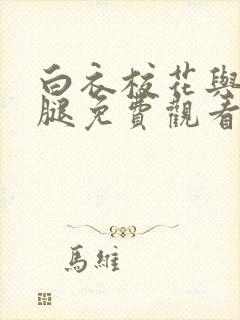 白衣校花與
腿免費觀看
馬維